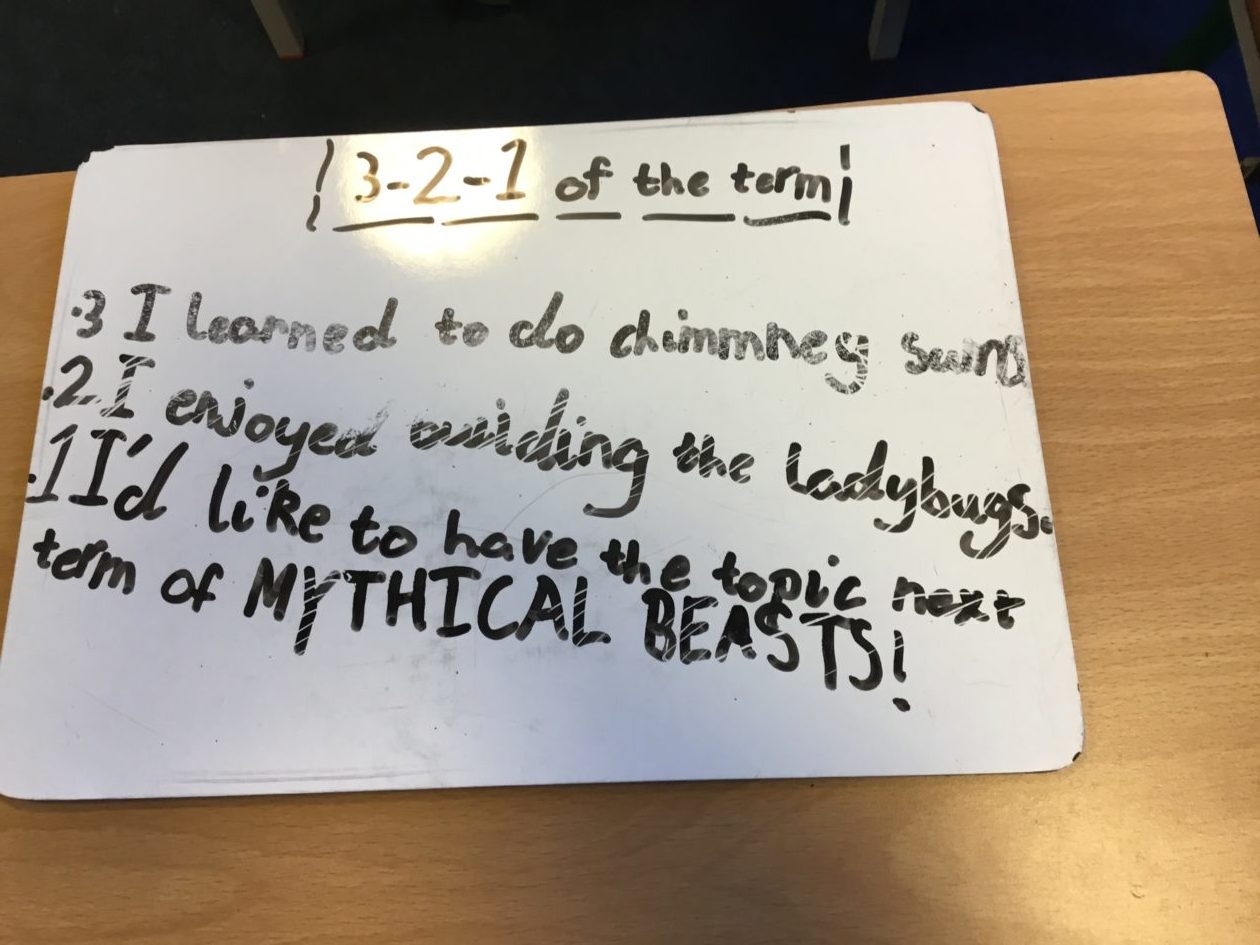 ¦3-2-1 of the term¦
·3 I learned to do chimmney sums
·2 I enjoyed building the ladybugs.
·1 I'd like to have the topic next
term of MYTHICAL BEASTS!